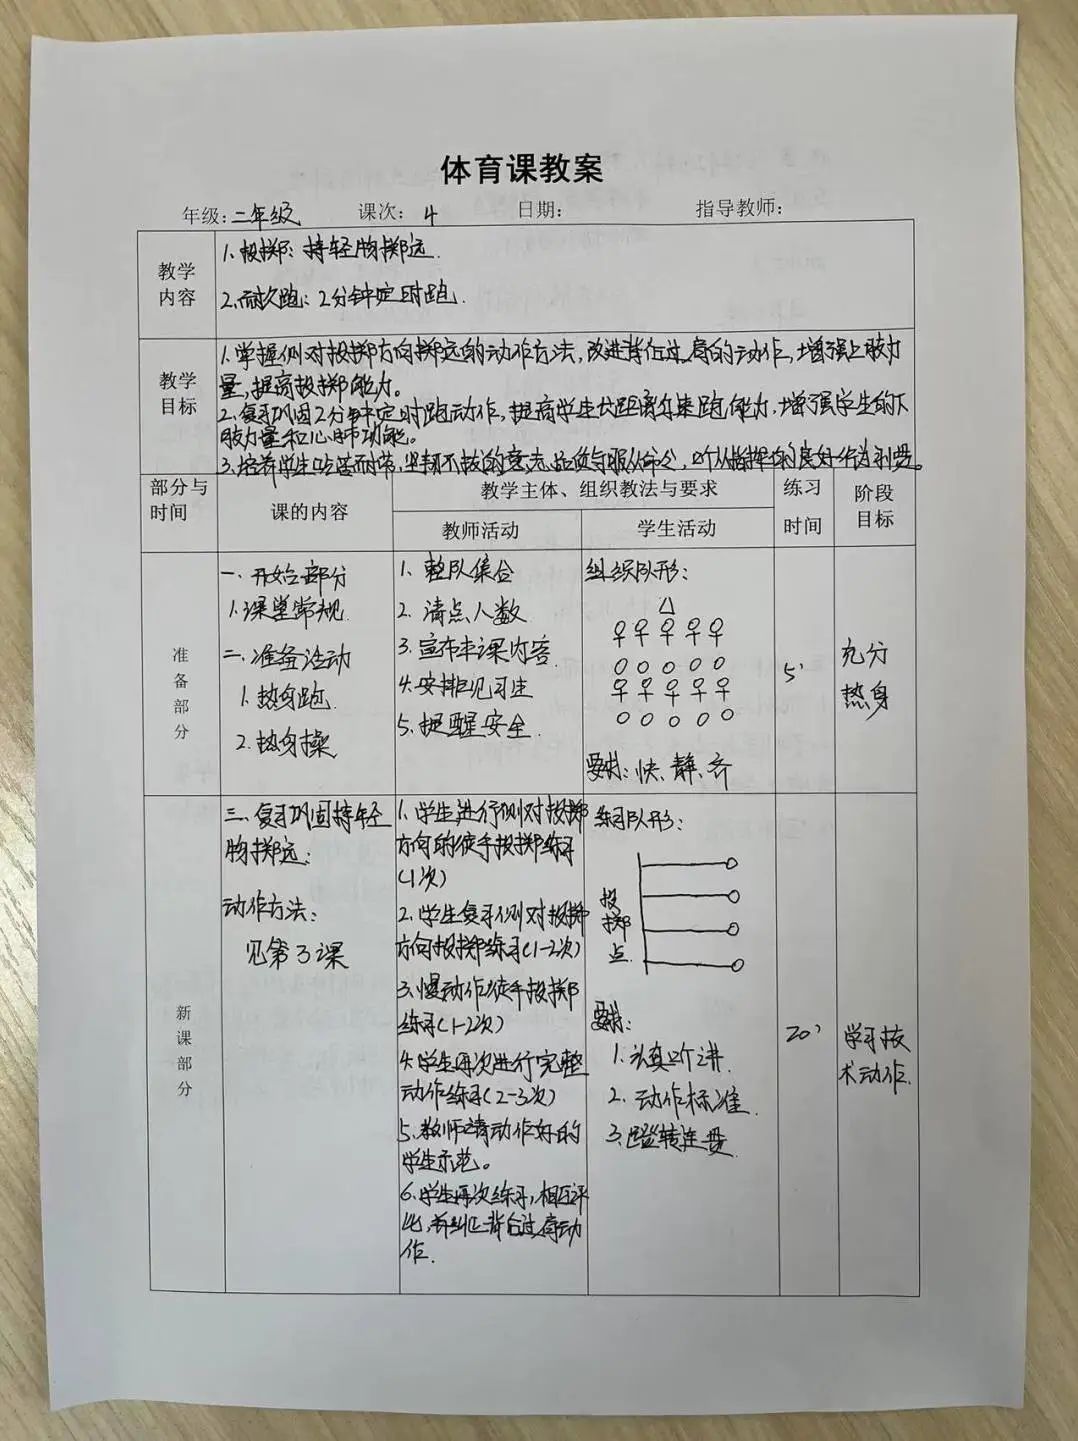 体育课教案
年级：二年级 课次：4 日期： 指导教师：
教学
内容
1.投掷：持轻物掷远.
2.耐久跑：2分钟定时跑.
教学
目标
1.掌握侧对投掷方向掷远的动作方法，改进背后过肩的动作，增强上肢力
量，提高投掷能力。
2.复习巩固2分钟定时跑动作，提高学生长距离尔速跑能力，增强学生的下
肢力量和心肺功能。
3.培养学生吃苦耐劳，坚韧不拔的意志品质与服从命令，听从指挥的良好行为习惯。
部分与
时间
课的内容
教学主体、组织教法与要求
教师活动
学生活动
练习
时间
阶段
目标
准
备
部
分
一、开始部分
1.课堂常规.
二、准备活动
1.热身跑.
2.热身操
1. 整队集合
2. 清点人数
3.宣布本课内容.
4.安排见习生
5.提醒安全.
组织队形：
要求：快、静、齐
5'
充分
热身
新
课
部
分
三、复习巩固持轻
物掷远：
动作方法：
见第3课
1.学生进行侧对投掷
方向的徒手投掷练习
(1次)
2.学生复习侧对投掷
方向投掷练习(1-2次)
3.慢动作徒手投掷
练习(1-2次)
4.学生再次进行完整
动作练习(2-3次)
5.教师请动作好的
学生示范。
6.学生再次练习，相互评
比，并纠正背后过肩动
作.
练习队形：
投
掷
点
要求：
1.认真听讲.
2.动作标准.
3.蹬转连贯
20'
学习技
术动作.